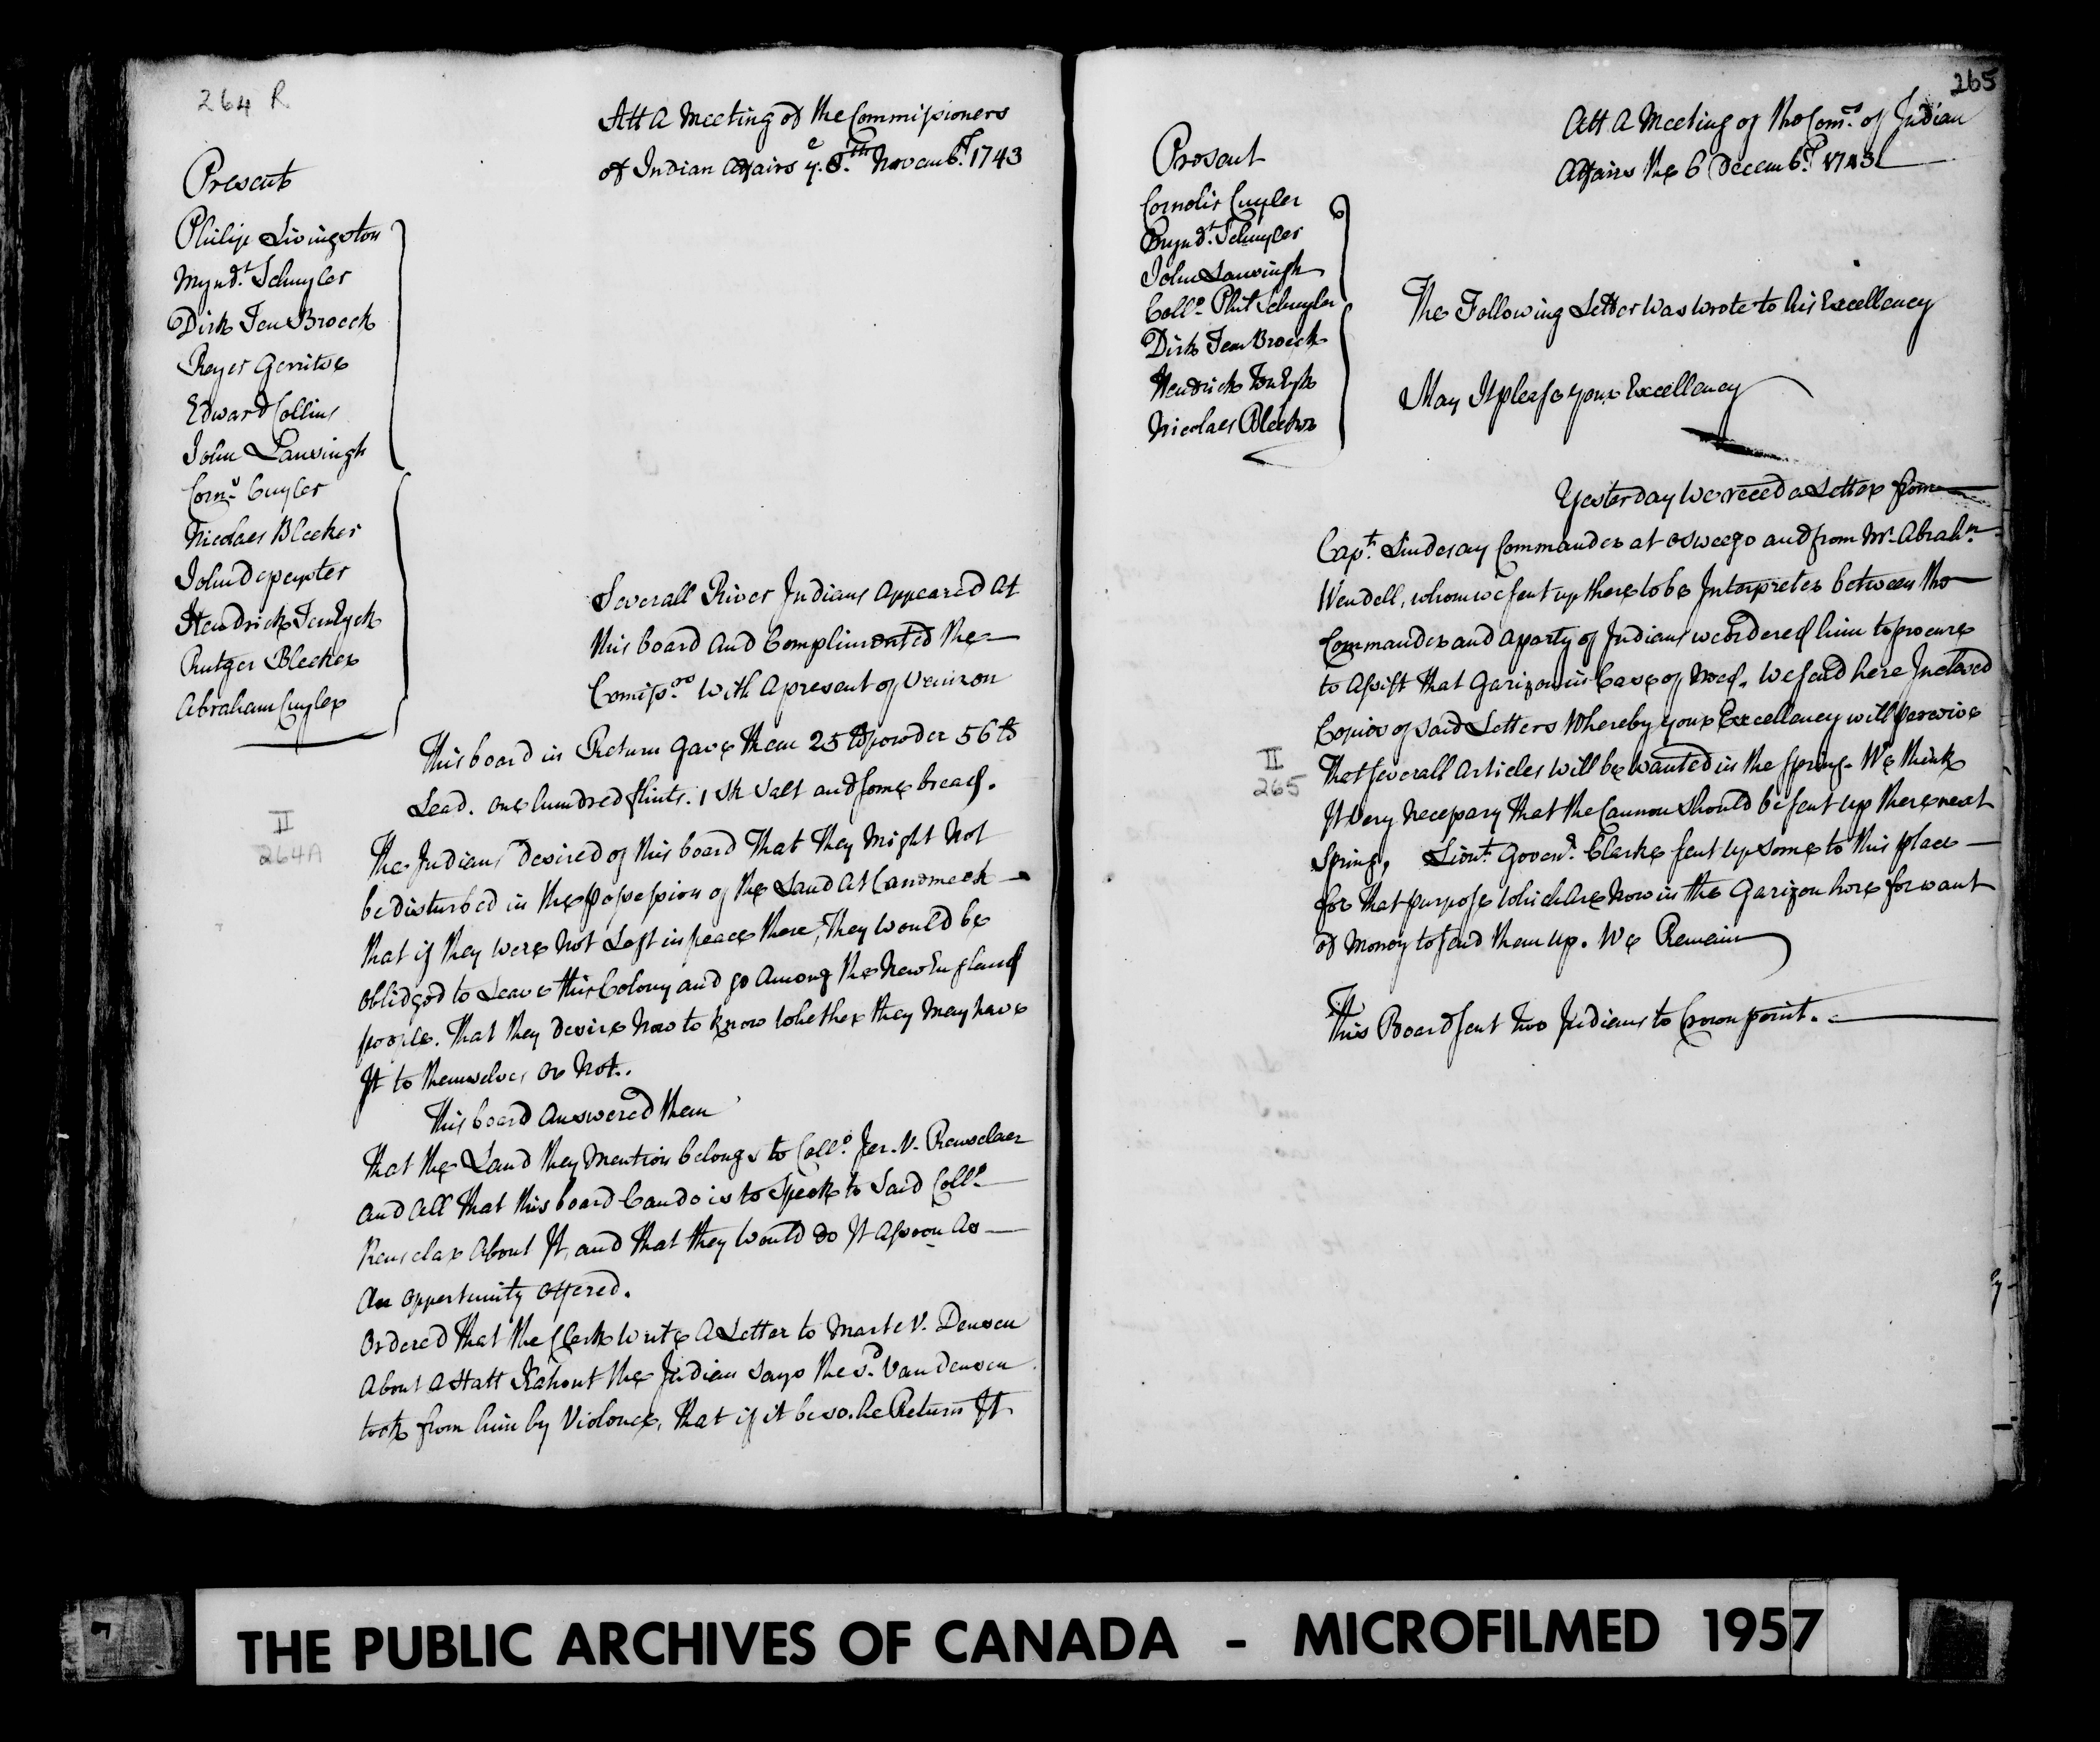 264 R
Att A Meeting of the Commissioners
of Indian Affairs ye. 8th Novembr. 1743
Present
Philip Livingston
Myndt. Schuyler
Dirk Ten Broeck
Reyer Gerritse
Edward Collins
John Lansingh
Cors. Cuyler
Nicolaes Bleeker
John Depeyster
Hendrick Ten Eyck
Rutger Bleeker
Abraham Cuyler
Severall River Indians Appeared At
this board and Complimented the
Comissrs. With a present of Venizon
This board in Return gave them 25 lb powder 56 lb
Lead. one hundred flints. 1 Sk Salt and some bread.
II
264A
The Indians desired of this board That They Might Not
be disturbed in the possession of the Land At Canomeek
that if they were Not Left in peace there, They Would be
oblidged to Leave this Colony and go Among the New England
people. That they desire Now to know Whether they May have
It to themselves or Not.
This board Answered them
That the Land they Mention belongs to Collo. Jer. V. Renselaer
and All That this board Can do is to Speek to Said Collo.
Renselaer About It, and that they Would do It Assoon As
An Oppertunity Offered.
Ordered That the Clerk Write A Letter to Marte V. Deusen
About a Hatt the Indian says the sd. Van Deusen
took from him by Violence, That if it be so. he Return It
265
Att A Meeting of the Comrs. of Indian
Affairs the 6 Decembr. 1743
Present
Cornelis Cuyler
Myndt. Schuyler
John Lansingh
Collo. Phil Schuyler
Dirk Ten Broeck
Hendrick Ten Eyk
Nicolaes Bleeker
The Following Letter Was wrote to his Excellency
May It please your Excellency
Yesterday We reced a Letter from
Capt. Lindesay Commander at Osweego and from Mr. Abrahm.
Wendell, whom we sent up there to be Interpreter between the
Commander and a party of Indians we ordered him to procure
to Assist that Garizon in Case of Need. We send here Inclosed
Copies of said Letters Whereby your Excellency will perceive
II
265
That severall Articles Will be Wanted in the Spring. We think
It Very Necessary That the Cannon Should be sent up there next
Spring, Lieut. Govenr. Clarke sent up some to this place
for That purpose Which Are Now in the Garizon here for want
of Money to send them up. We Remain
This Board sent two Indians to Crown point.
THE PUBLIC ARCHIVES OF CANADA - MICROFILMED 1957